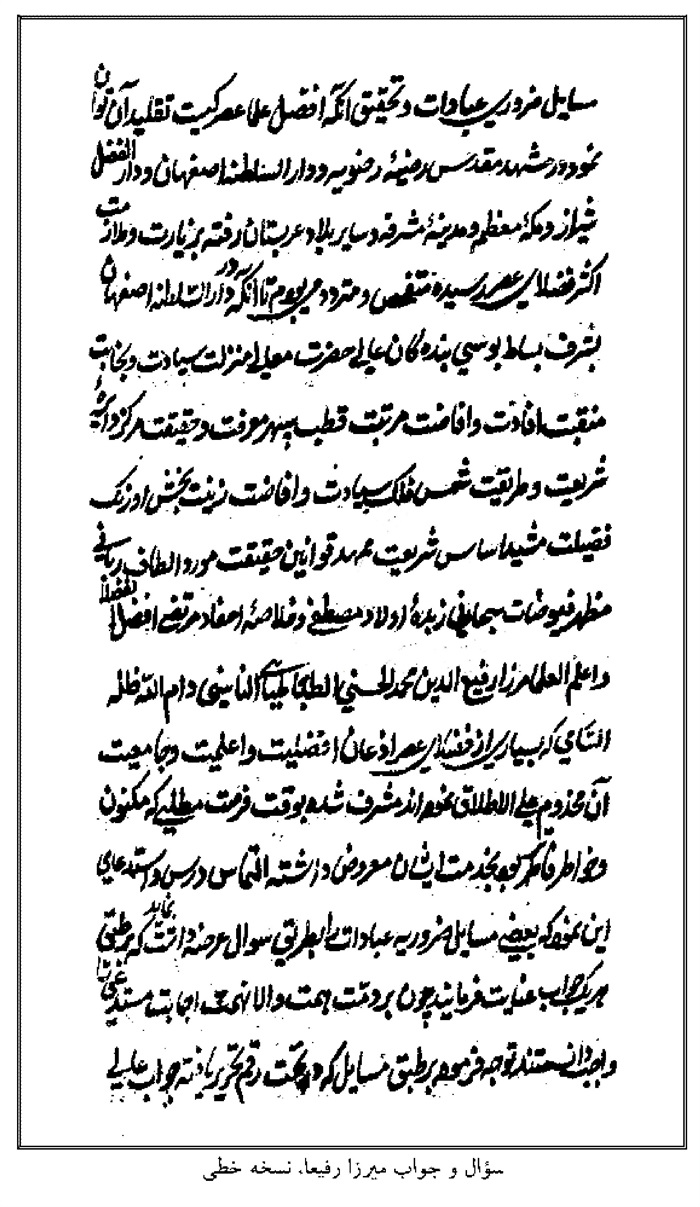 مسایل ضروری عبادات و تحقیق آنکه افضل علماء عصر کیست تقلید آن توان
نمود در مشهد مقدس رضیهٔ رضویه و دار السلطنه اصفهان و دار الفضل
شیراز و مکهٔ معظم و مدینهٔ مشرفه و سایر بلاد عربستان رفته بزیارت و ملازمت
اکثر فضلای عصر رسیده متفحص و متردد می بودم تا آنکه در دار السلطنه اصفهان
بشرف بساط بوسی بنده کان عالی حضرت معلی منزلت سیادت و نجابت
منقبت افادت و افاضت مرتبت قطب سپهر معرفت و حقیقت مرکز دایرهٔ
شریعت و طریقت شمس فلک سیادت و افاضت زینت بخش اورنک
فضیلت مشید اساس شریعت ممهد قوانین حقیقت مورد الطاف ربانی
مظهر فیوضات سبحانی زبدهٔ اولاد مصطفی و خلاصهٔ احفاد مرتضی افضل الفضلا
و اعلم العلما مرزا رفیع الدین محمد الحسنی الطباطبایی النایینی دام الله ظله
السامی که بسیاری از فضلای عصر اذعان افضلیت و اعلمیت و جامعیت
آن مخدوم علی الاطلاق نموده اند مشرف شده بوقت فرصت مطلبی که مکنون
خواطر فاطر بود بخدمت ایشان معروض داشته التماس درس و استدعای
این نموده که بعضی مسایل ضروریه عبادات را بطریق سوال عرضه داشت نماید که بر طبق
هریک جواب عنایت فرمایند چون بر ذمت همت والا نهمت اجابت مستدعی
واجب دانستند توجه فرموده بر طبق مسایل که در تحت رقم تحریر یافته جواب عالی
سؤال و جواب میرزا رفیعا، نسخه خطی